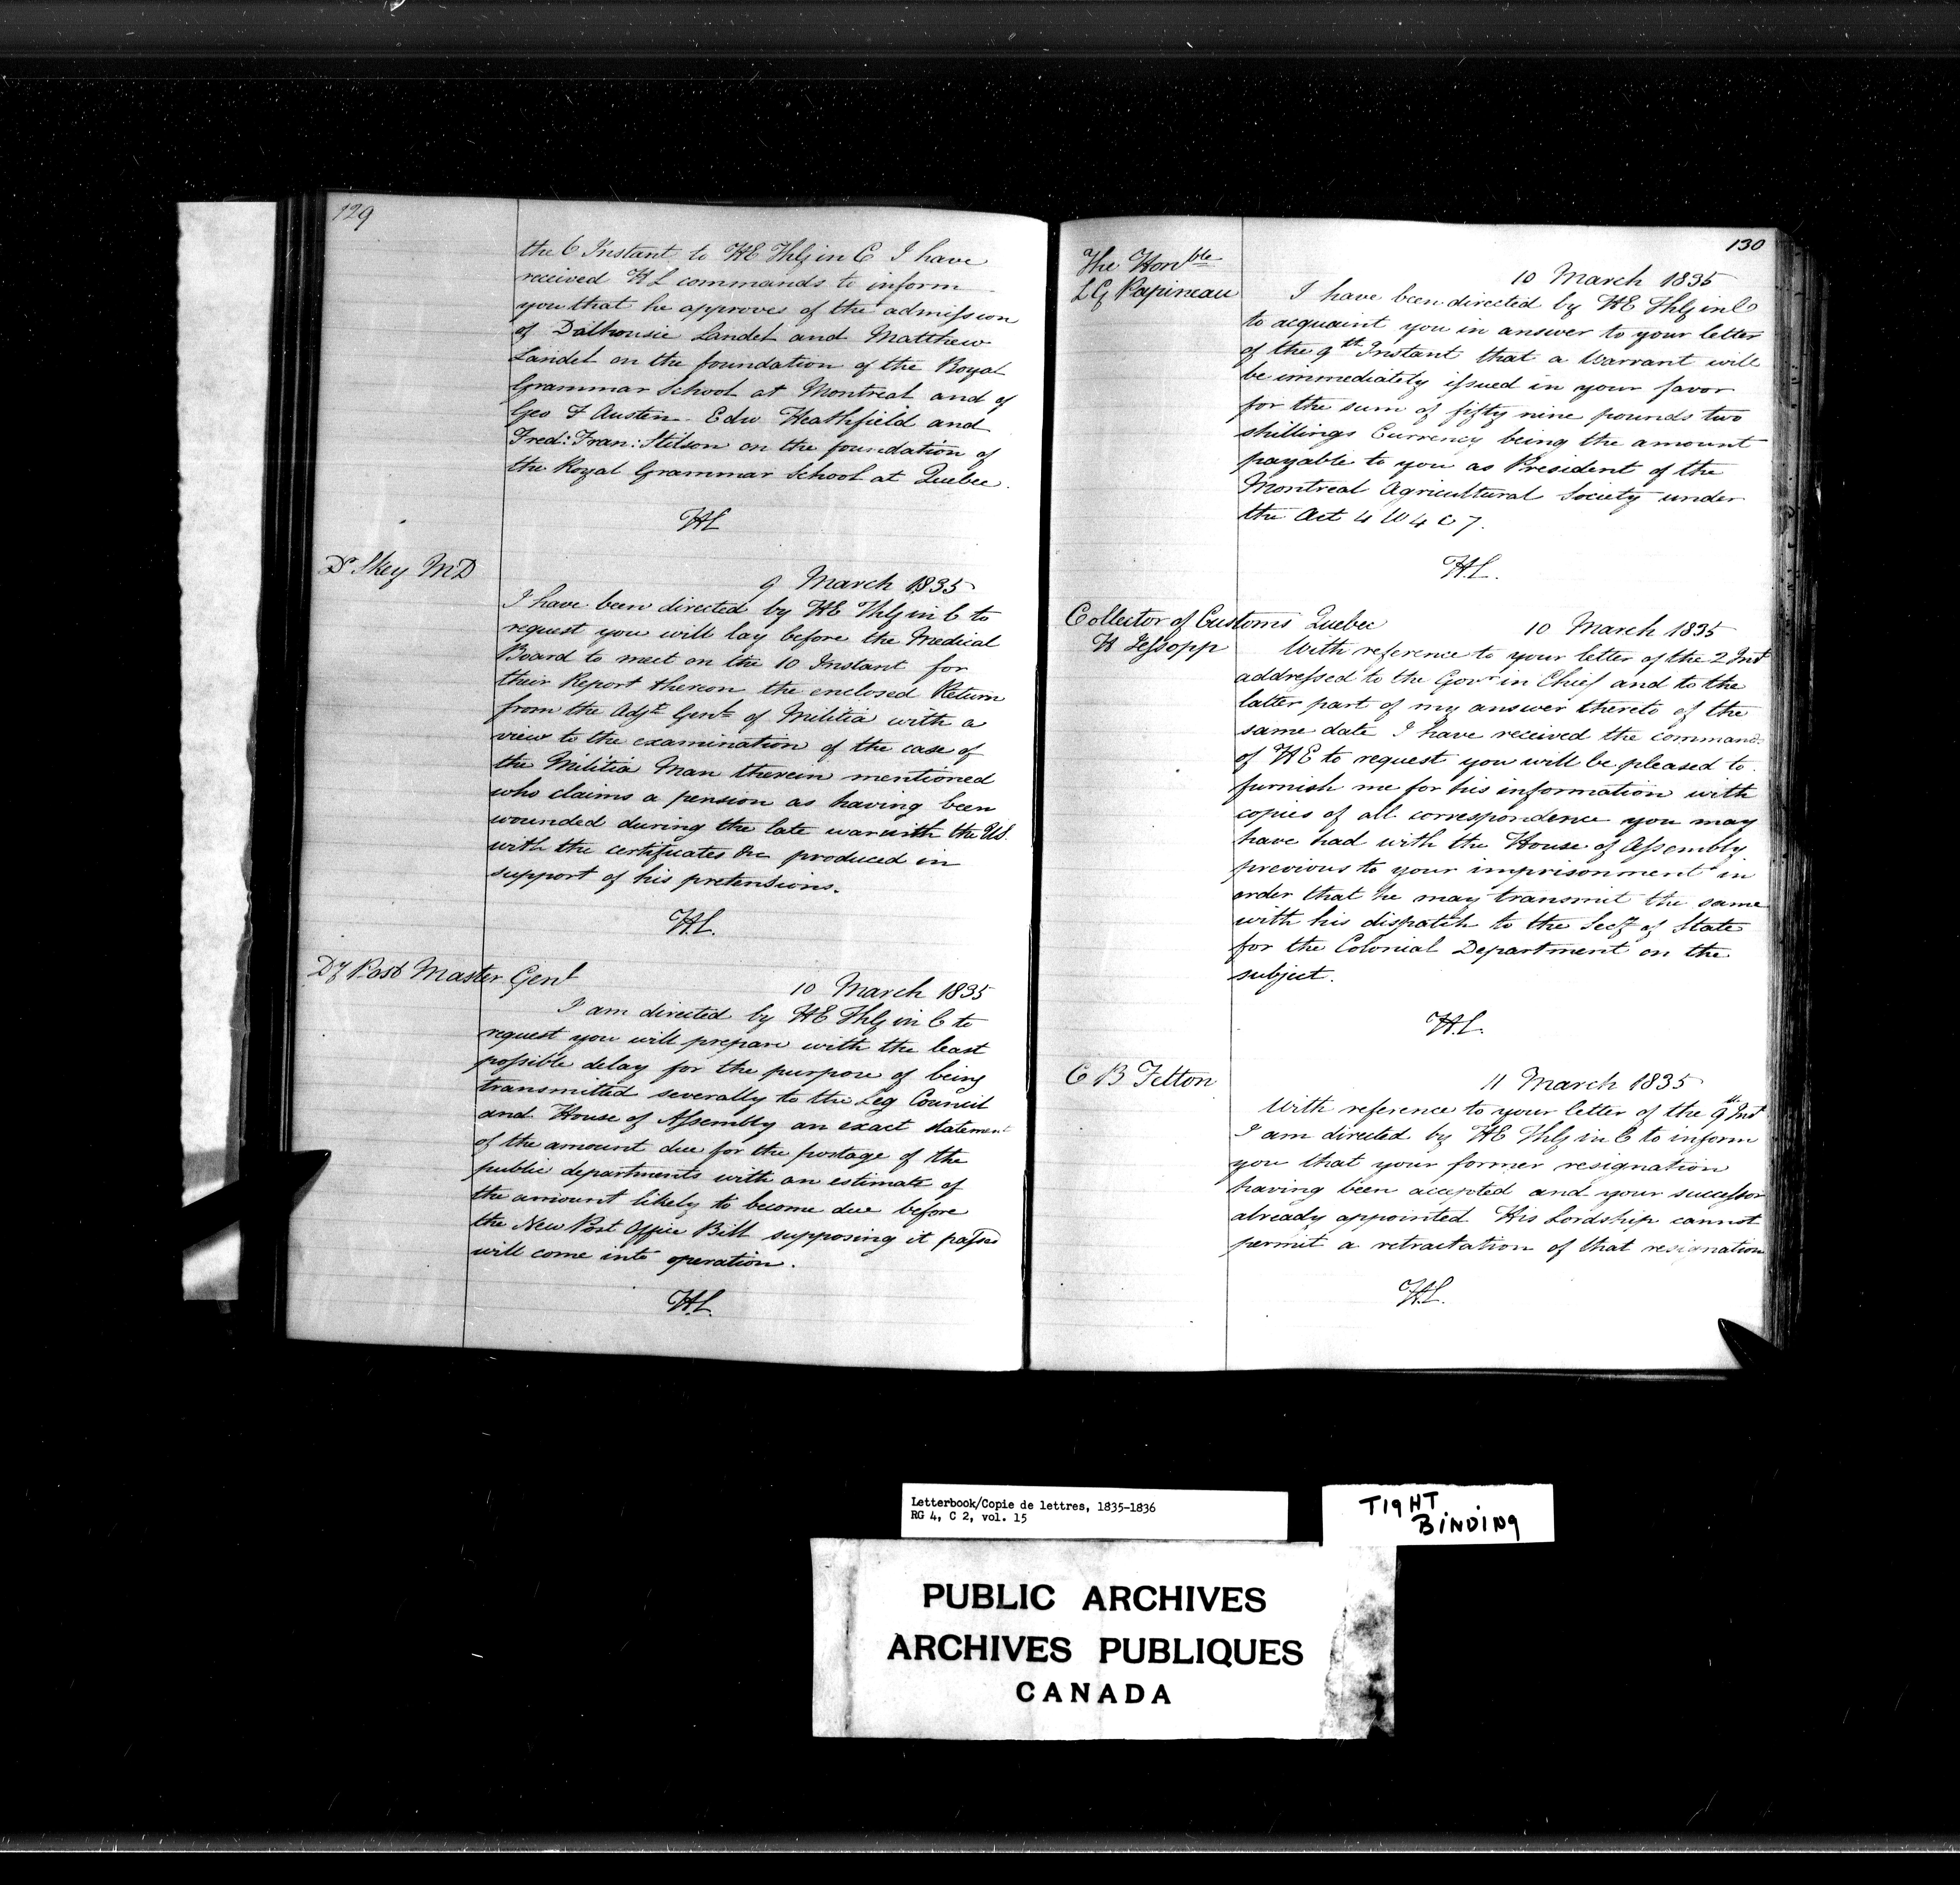 129
the 6 Instant to HE Thlg in C I have
received HL commands to inform
you that he approves of the admission
of Dalhousie Landel and Matthew
Landel on the foundation of the Royal
Grammar School at Montreal and of
Geo F Austen Edw Heathfield and
Fred: Fran: Stilson on the foundation of
the Royal Grammar School at Quebec.
HL
Dr Skey MD
9 March 1835
I have been directed by HE Thlg in C to
request you will lay before the Medical
Board to meet on the 10 Instant for
their Report thereon the enclosed Return
from the Adjt Genl of Militia with a
view to the examination of the case of
the Militia Man therein mentioned
who claims a pension as having been
wounded during the late war with the US.
with the certificates &c produced in
support of his pretensions.
H.L.
Dy Post Master Genl
10 March 1835
I am directed by HE Thlg in C to
request you will prepare with the least
possible delay for the purpose of being
transmitted severally to the Leg Council
and House of Assembly an exact statement
of the amount due for the postage of the
public departments with an estimate of
the amount likely to become due before
the New Post Office Bill supposing it passed
will come into operation.
H.L.
130
The Honble
LG Papineau
10 March 1835
I have been directed by HE Thlg in C
to acquaint you in answer to your letter
of the 9th Instant that a Warrant will
be immediately issued in your favor
for the sum of fifty nine pounds two
shillings Currency being the amount
payable to you as President of the
Montreal Agricultural Society under
the Act 4 W 4 C 7.
H.L.
Collector of Customs Quebec
H Jessopp
10 March 1835
With reference to your letter of the 2 Inst
addressed to the Govr in Chief and to the
latter part of my answer thereto of the
same date I have received the commands
of HE to request you will be pleased to
furnish me for his information with
copies of all correspondence you may
have had with the House of Assembly
previous to your imprisonment in
order that he may transmit the same
with his dispatch to the Secy of State
for the Colonial Department on the
subject.
H.L.
C B Felton
11 March 1835
With reference to your letter of the 9th Inst
I am directed by HE Thlg in C to inform
you that your former resignation
having been accepted and your successor
already appointed His Lordship cannot
permit a retractation of that resignation
H.L.
Letterbook/Copie de lettres, 1835-1836
RG 4, C 2, vol. 15
TIGHT
BINDING
PUBLIC ARCHIVES
ARCHIVES PUBLIQUES
CANADA